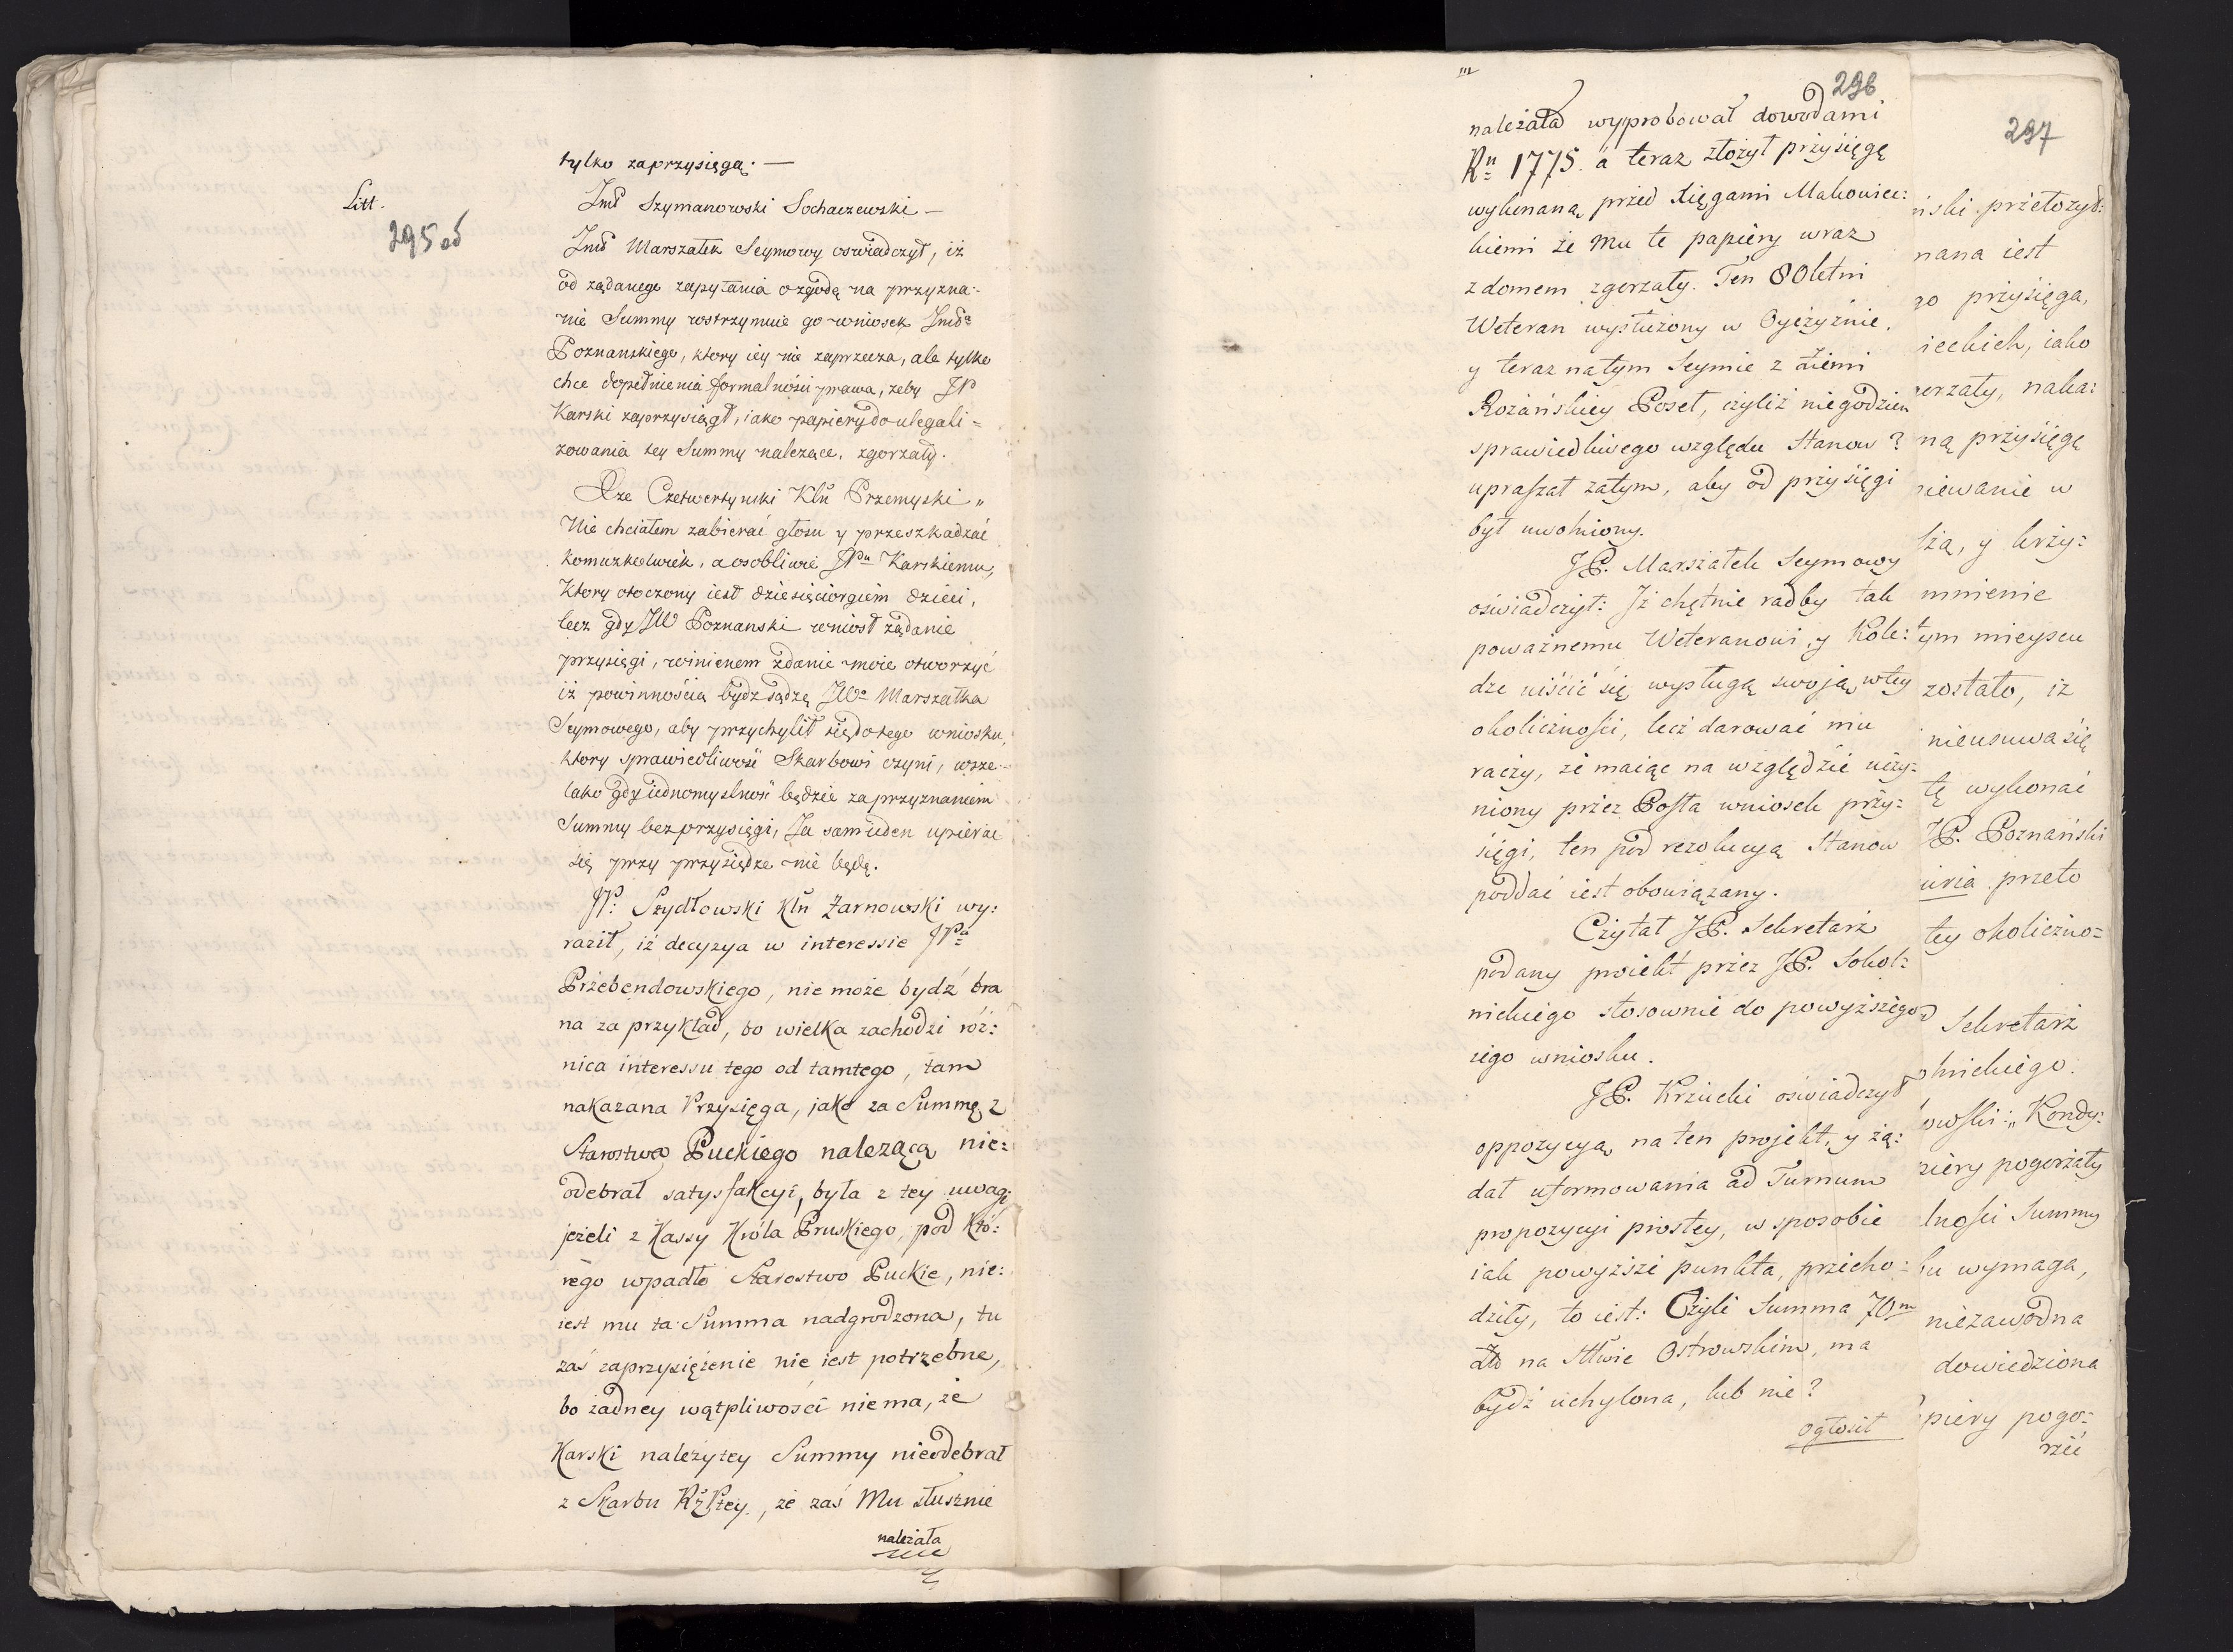 Litt.
295 od
tylko zaprzysięgą. —
Jmć Szymanowski Sochaczewski —
Jmć Marszałek Seymowy oswiadczył, iż
od żądanego zapytania o zgodę na przyzna-
nie Summy wstrzymuie go wniosek Jmci
Poznanskiego, ktory iey nie zaprzecza, ale tylko
chce dopełnienia formalności prawa, żeby JP
Karski zaprzysiągł, iako papiery do ulegali=
zowania tey Summy nalezące, zgorzały.
Xże Czetwertynski Kln Przemyski „
Nie chciałem zabierać głosu y przeszkadzać
komużkolwiek, a osobliwie JPu Karskiemu,
Ktory otoczony iest dziesięciorgiem dzieci,
lecz gdy JW Poznanski wniosł żądanie
przysięgi, winienem zdanie moie otworzyć
iż powinnością bydz sądzę JWo Marszałka
Seymowego, aby przychylił się do tego wniosku,
ktory sprawiedliwość Skarbowi czyni, wsze-
lako gdy iednomyslność będzie za przyznaniem
Summy bez przysięgi, Ja sam ieden upierać
się przy przysiędze nie będę.
JP. Szydłowski Kln Żarnowski wy:
raził, iż decyzya w interessie JPa
Przebendowskiego, nie może bydź bra
na za przykład, bo wielka zachodzi róż:
nica interessu tego od tamtego, tam
nakazana Przysięga, jako za Summę z
Starostwa Puckiego należącą nie:
odebrał satysfakcyi, była z tey uwagi
jeżeli z Kassy Króla Pruskiego, pod Któ:
rego wpadło Starostwo Puckie, nie:
iest mu ta Summa nadgrodzona, tu
zaś zaprzysiężenie nie iest potrzebne,
bo żadney wątpliwości niema, że
Karski należytey Summy nieodebrał
z Skarbu RżPtey., że zaś Mu słusznie
należała
296
należała wyprobował dowodami
Ru 1775. a teraz złożył przysięgę
wykonaną przed Xięgami Makowiec:
kiemi że mu te papiery wraz
z domem zgorzały. Ten 80letni
Weteran wysłużony w Oyczyznie,
y teraz natym Seymie z Ziemi
Rożańskiey Poseł, czyliż niegodzien
sprawiedliwego względu Stanow?
upraszał zatym, aby od przysięgi
był uwolniony.
JP. Marszałek Seymowy
oświadczył: Iż chętnie radby tak
poważnemu Weteranowi, y Kole:
dze uiścić się wysługą swoją w tey
okoliczności, lecz darować mu
raczy, że maiąc na względzie uczy:
niony przez Posła wniosek przy:
sięgi, ten pod rezolucyą Stanow
poddać iest obowiązany.
Czytał JP. Sekretarz
podany proiekt przez JP. Sokol:
nickiego stosownie do powyższego
iego wniosku.
JP. Krzucki oświadczył
oppozycyą na ten projekt, y żą:
dał uformowania ad Turnum
propozycyi prostey, w sposobie
iak powyższe punkta przycho:
dziły, to iest: Czyli Summa 70m
Zło na Sttwie Ostrowskim, ma
bydź uchylona, lub nie?
ogłosił
297
ński przełożył:
nana iest
go przysięga,
ieckich, iako
orzały, naka:
ną przysięgę
piewanie w
szą, y krzy:
mnienie
tym mieyscu
zostało, iż
nieusuwa się
tę wykonać
JP. Poznański
uria przeto
tey okoliczno=
Sekretarz
olnickiego.
owski: „Kondy:
piery pogorzały
lności Summy
ku wymaga,
niezawodna
dowiedziona
piery pogo:
rzeć